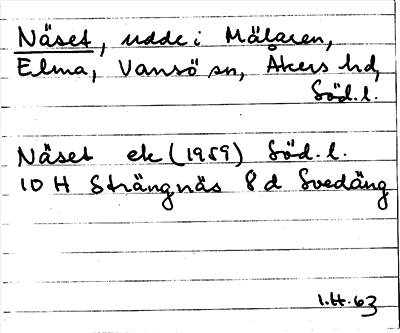 Näset, udde i Mälaren,
Elma, Vansö sn, Åkers hd,
Söd.l.
Näset ek (1959) Söd.l.
10 H Strängnäs 8 d Svedäng